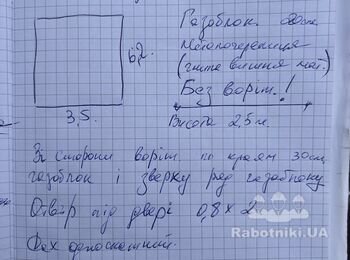 Газоблок 20см
Металочерепиця
(гнита вишня мат.)
6,2.
Без воріт!
3,5.
Висота 2,5м.
Зі сторони воріт по краям 30см
газоблок і зверху ряд газоблоку
Отвір під двері 0,8 х 2
Дах односкатний.
Rabotniki.UA